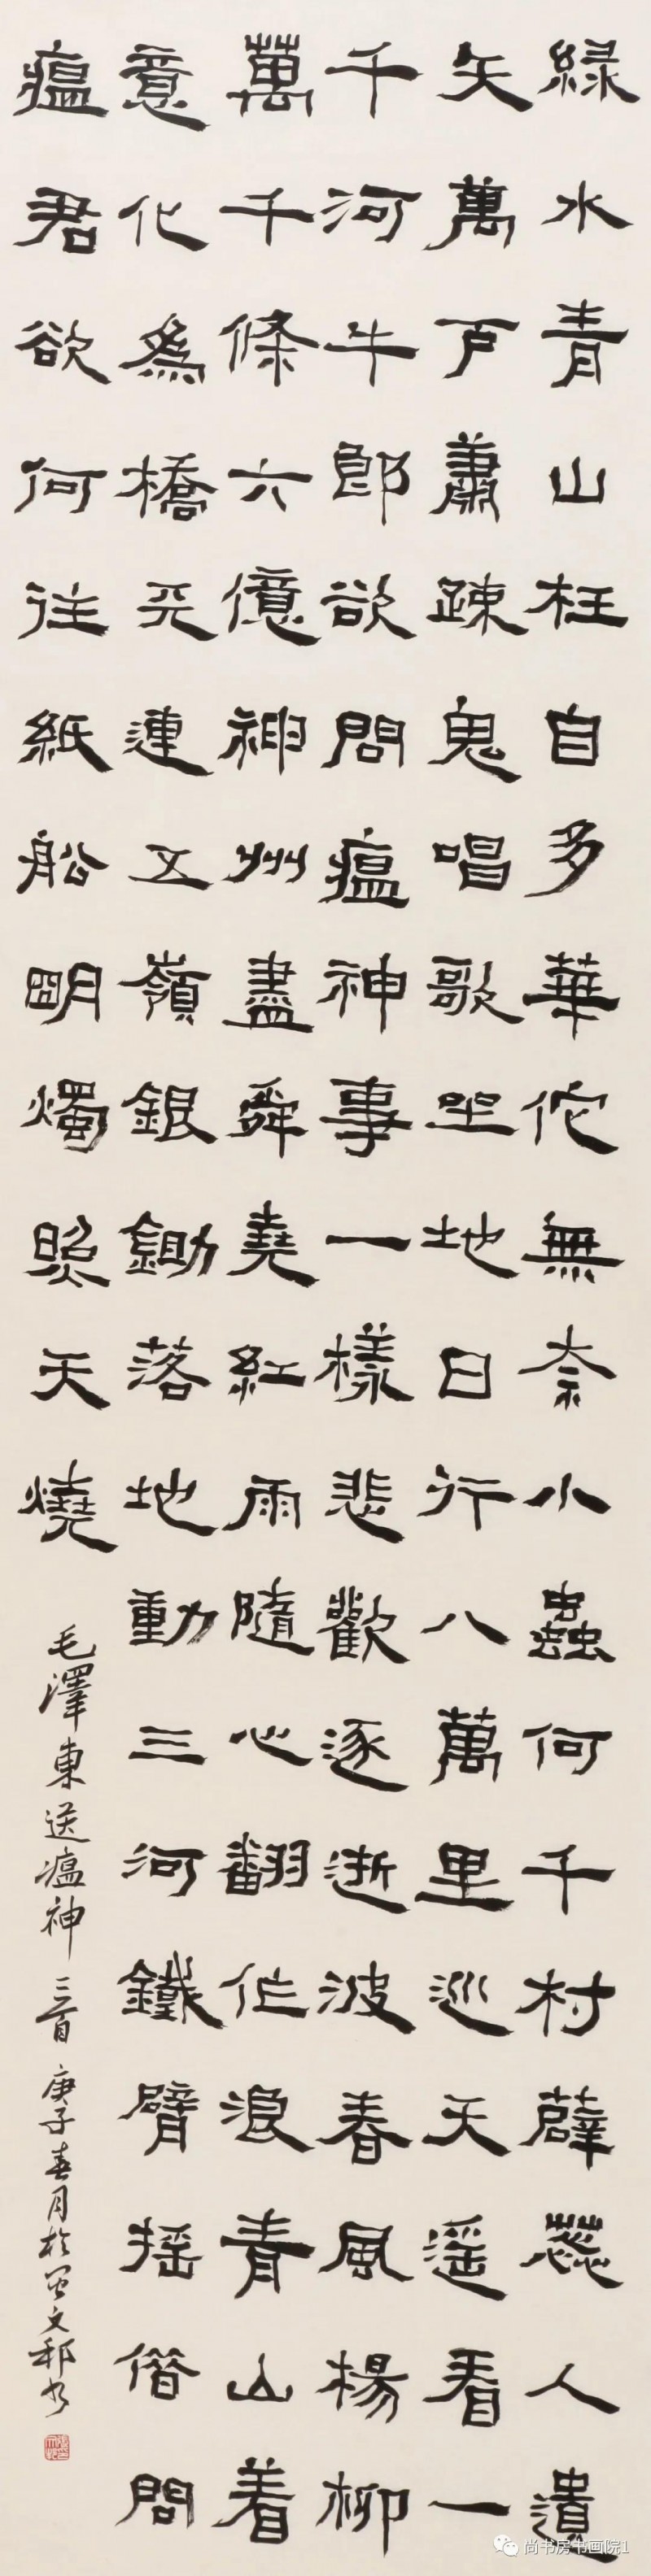 緑水青山枉自多華佗無奈小蟲何千村薜蕊人遺
矢萬户蕭疎鬼唱歌坐地日行八萬里巡天遥看一
千河牛郎欲問瘟神事一樣悲歡逐逝波春風楊柳
萬千條六億神州盡舜堯紅雨隨心翻作浪青山着
意化為橋天連五嶺銀鋤落地動三河鐵臂摇借問
瘟君欲何往紙船明燭照天燒
毛澤東送瘟神二首庚子春月於文书
尚书房书画院1